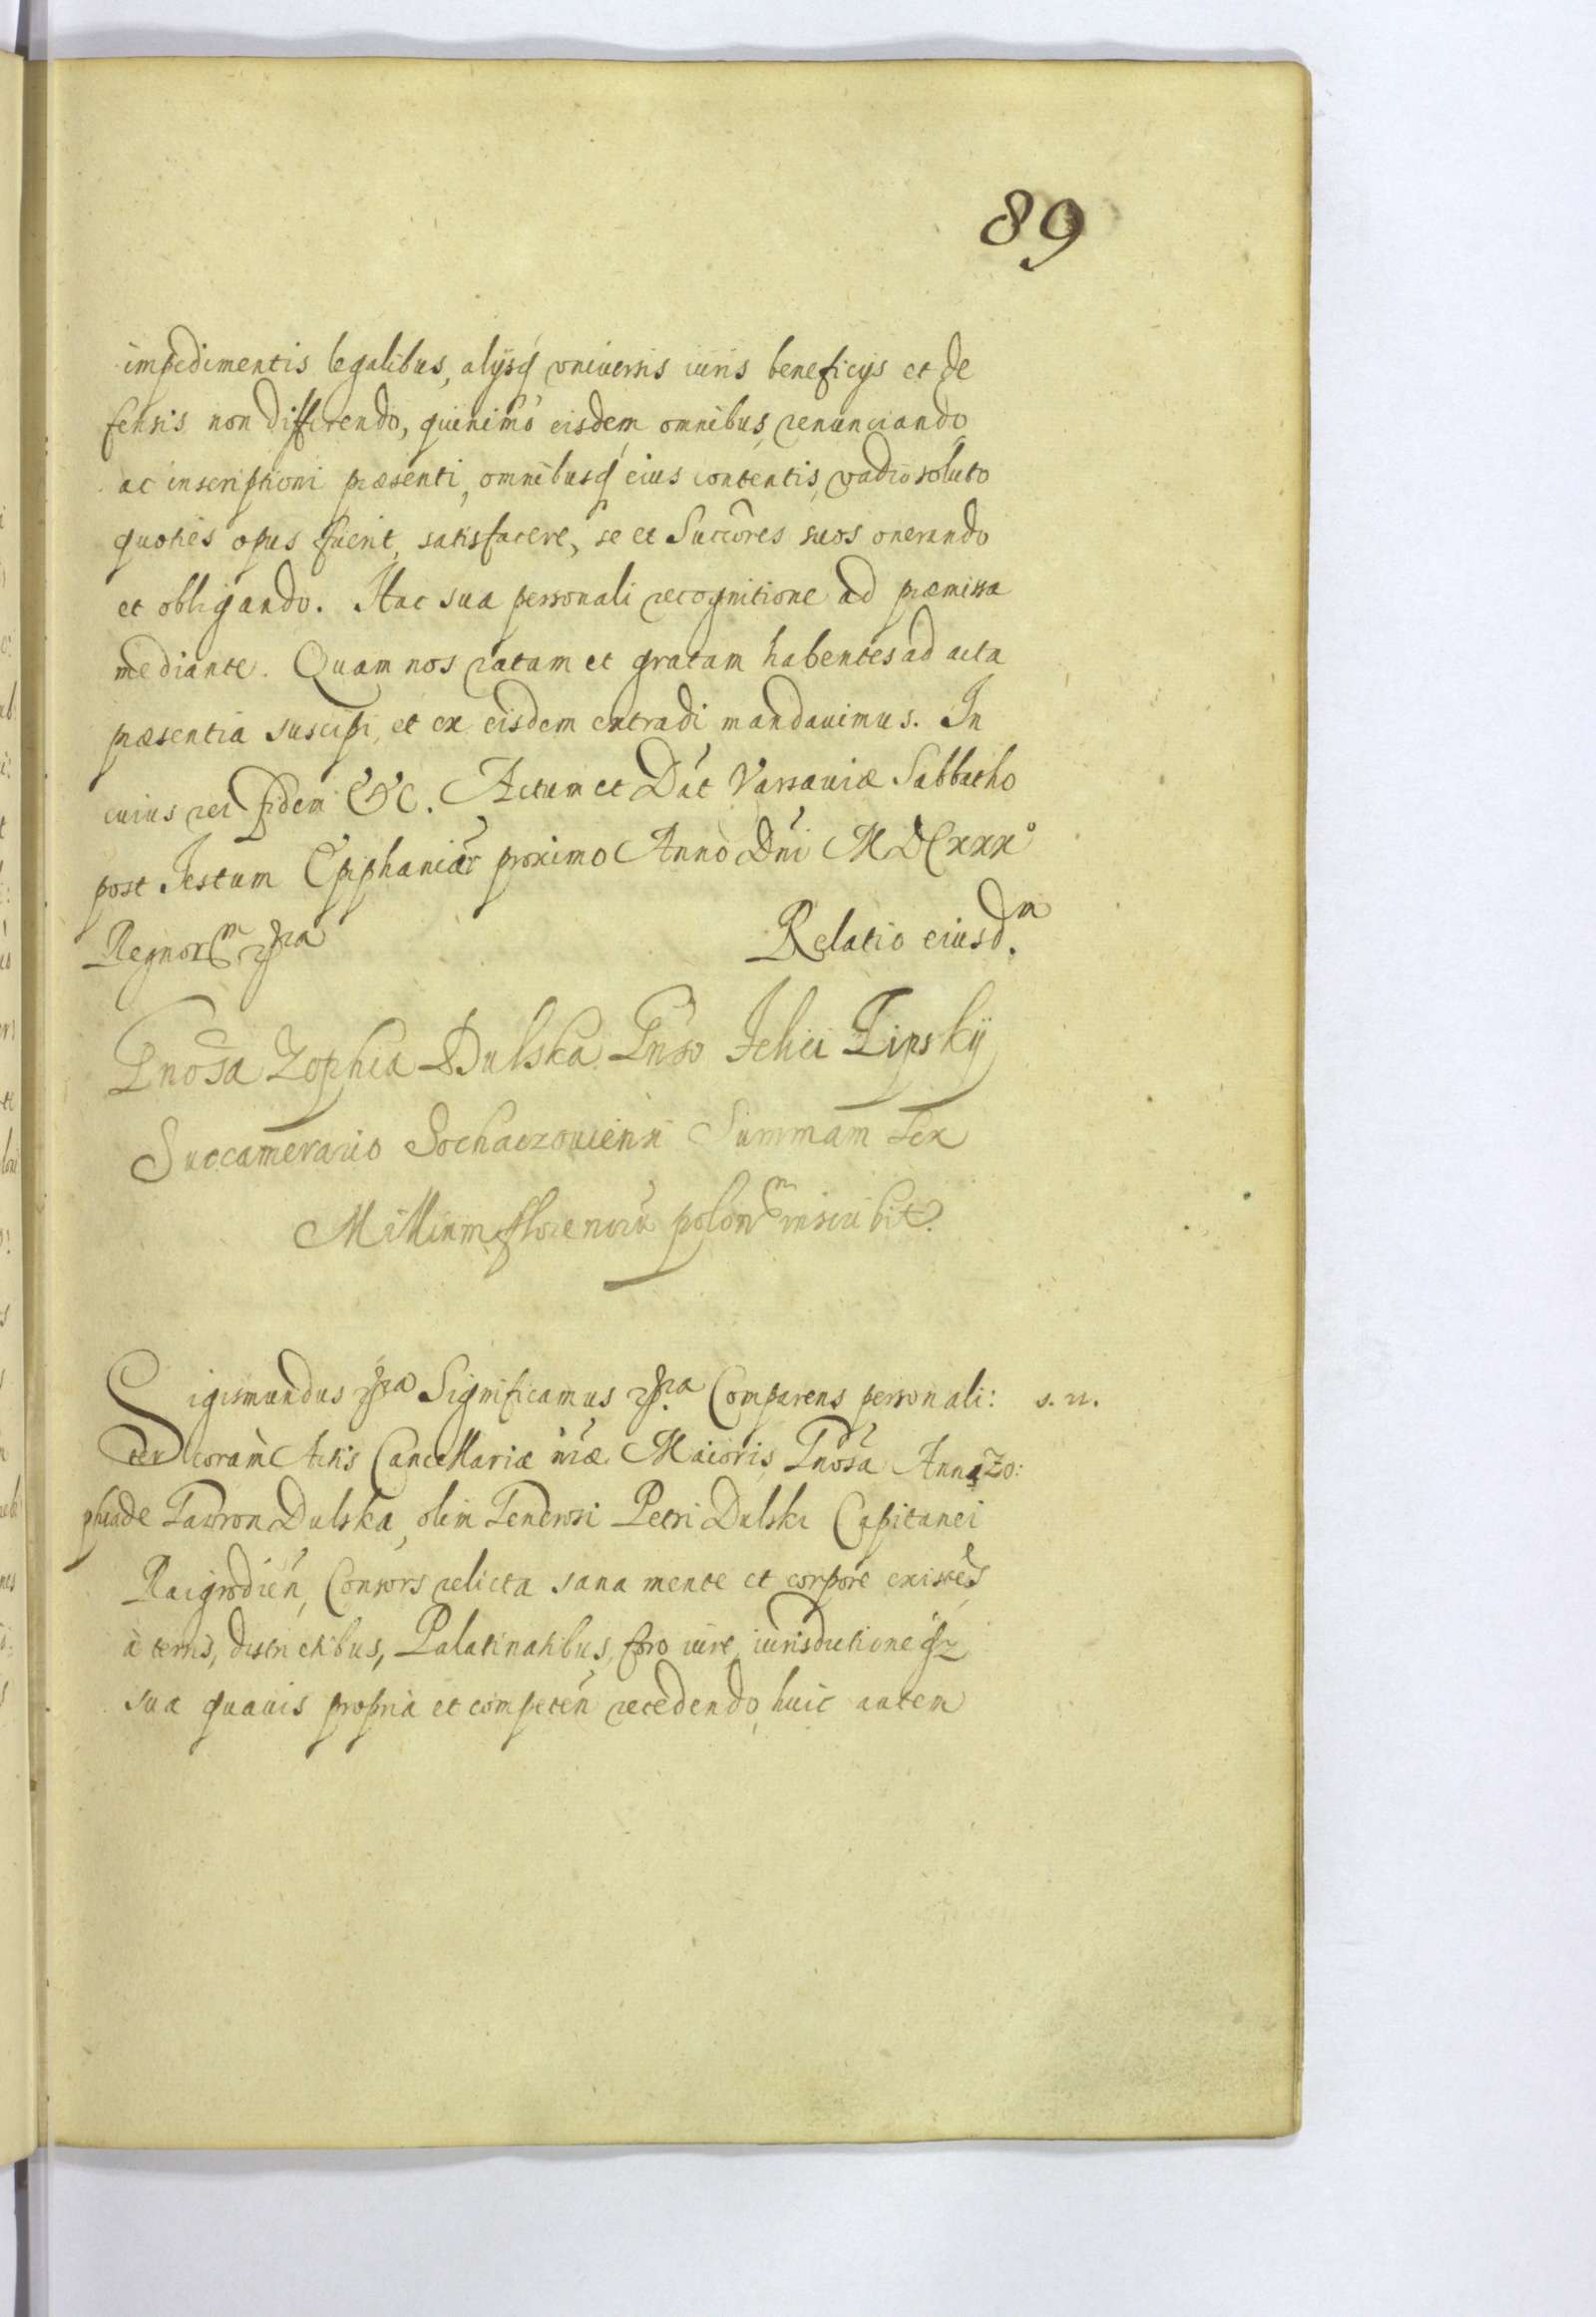 89
impedimentis legalibus, alijsq́ vniuersis iuris beneficijs et de
fensis non differendo, quinimo eisdem omnibus renunciando
ac inscriptioni præsenti, omnibusq́ eius contentis, vadio soluto
quoties opus fuerit, satisfacere, se et Succores suos onerando
et obligando. Hac sua personali recognitione ad præmissa
mediante. Quam nos ratam et gratam habentes ad acta
præsentia suscipi, et ex eisdem extradi mandauimus. In
cuius rei fidem &c. Actum et Dat Varsauiæ Sabbatho
post Festum Epiphaniar proximo Anno Dni MDCxxx°
Regnorm Relatio eiusd.m
Gnosa Zophia Dulska Gnso Felici Lipskij
Succamerario Sochaczouien Summam sex
Millium florenorū polon inscribit.
Sigismundus Significamus Comparens personali: s. n.
ter coram Actis Cancellariæ nræ Maioris, Gnosa Anna Zo:
phia de Dulska, olim Generosi Petri Dulski Capitanei
Raigrodien, Consors relicta sana mente et corpore existēs
à terris, districtibus, Palatinatibus, foro iure, iurisdictione
sua quauis propria et competen recedendo, huic autem